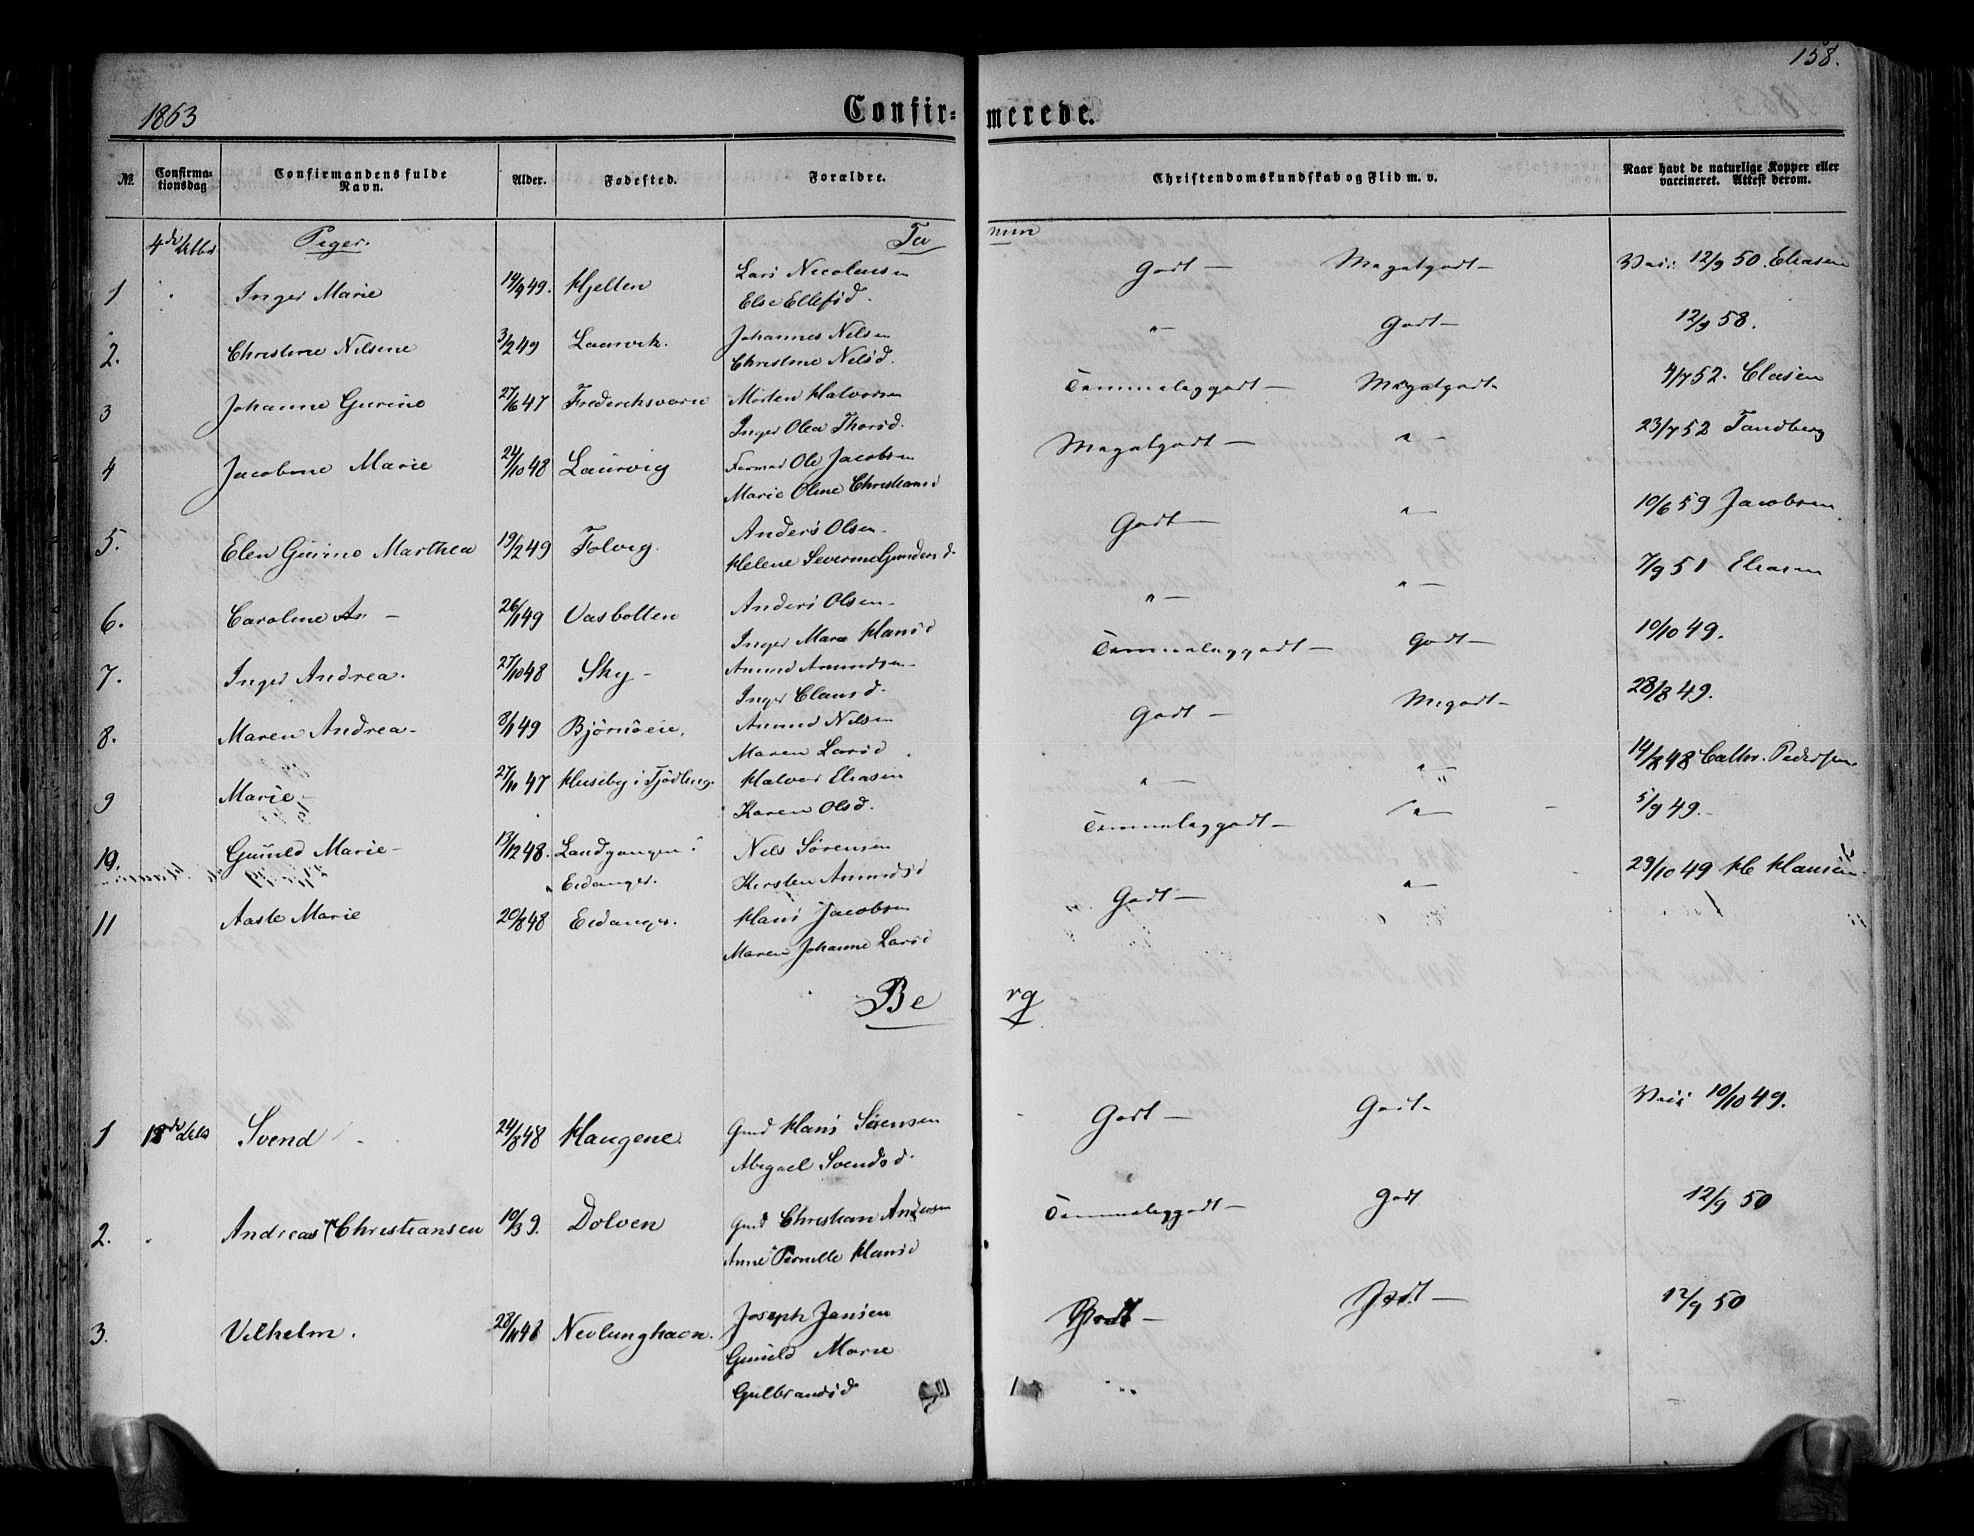 158.
1863 Confir= merede.
No. Confirmationsdag Confirmandens fulde Navn. Alder. Fødested. Forældre. Christendomskundskab og Flid m. v. Naar havt de naturlige Kopper eller vaccineret. Attest derom.
4de Octbr Piger. Ta num
1 Inger Marie 14/9 49. Hjelten Lars Nicolaisen Godt — Megetgodt — Vacc 12/9 50. Eliasen
Else Ellefsd.
2. Christine Nilsine 3/2 49 Laurvik. Johannes Nilsen " — Godt — 12/9 58.
Christine Nilsd.
3 Johanne Gurine 27/6 47 Frederiksværn Morten Halvorsen Temmeliggodt — Megetgodt 4/7 52. Claesen
Inger Olea Thorsd.
4 Jacobine Marie 24/10 48 Laurvig Ole Jacobsen Megetgodt — " — 23/7 52 Tandberg
Marie Oline Christiansd
5. Elen Gurine Marthea 19/2 49 Folvig. Anders Olsen Godt — " — 10/6 59 Jacobsen.
Helene Severine Gundersd.
6. Caroline — 26/1 49 Vasbotten Anders Olsen — " — " — 7/9 51 Eliasen
Inger Marie Hansd
7. Inger Andrea. 27/10 48 Sky — Amund Amundsen — Temmeliggodt — Godt — 10/10 49.
Inger Clausd.
8. Maren Andrea — 8/1 49 Bjørnøeie. Amund Nilsen Godt — Mgodt — 28/8 49.
Maren Larsd
9 Marie — 27/11 47 Huseby i Tjødling. Halvor Eliasen " — " — 14/8 48 Cathr. Pedersen.
Karen Olsd.
10. Gunild Marie — 13/12 48. Landgangen i Nels Sørensen Temmeliggodt — " — 5/9 49. —
Eidanger. Kirsten Amundsd
11 Aaste Marie 20/8 48 Eidanger. Hans Jacobsen Godt — " — 29/10 49 H. Hansen
Maren Johanne Larsd
Be rg
1 18de Octb Svend 24/8 48 Haugene. Gmd Hans Sørensen Godt — Godt. Vacc 10/10 49.
Abigael Svendsd.
2. Andreas Christiansen 10/3 9. Dolven Gmd Christian Andersen Temmeliggodt — Godt 12/9 50
Anne Pernille Hansd
3. Vilhelm. 28/11 48 Nevlunghavn. Joseph Jansen Godt — Godt — 12/9 50
Gunild Marie
Gulbrandsd